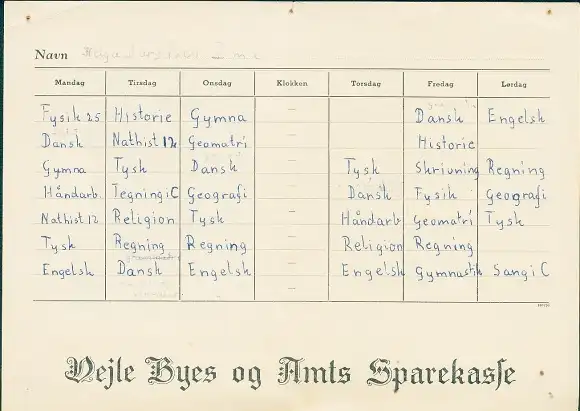 Navn
Mandag Tirsdag Onsdag Klokken Torsdag Fredag Lørdag
Fysik 25 Historie Gymna Dansk Engelsk
Dansk Nathist 12 Geomatri Historie
Gymna Tysk Dansk Tysk Skrivning Regning
Håndarb Tegning i C Geografi Dansk Fysik Geografi
Nathist 12 Religion Tysk Håndarb Geomatri Tysk
Tysk Regning Regning Religion Regning
Engelsk Dansk Engelsk Engelsk Gymnastik Sang i C
Vejle Byes og Amts Sparekasse